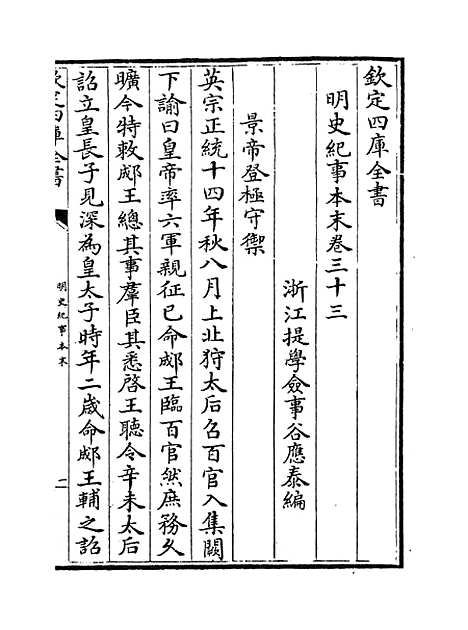 欽定四庫全書
明史紀事本末卷三十三
浙江提學僉事谷應泰編
景帝登極守禦
英宗正統十四年秋八月上北狩太后召百官入集闕
下諭曰皇帝率六軍親征已命郕王臨百官然庶務久
曠今特敕郕王總其事羣臣其悉啓王聽令辛未太后
詔立皇長子見深為皇太子時年二歲命郕王輔之詔
欽定四庫全書
明史紀事本末
二